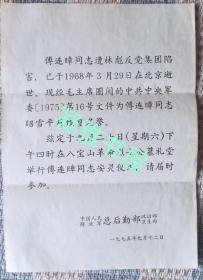 傅连暲同志遭林彪反党集团陷
害，已于1968年3月29日在北京逝
世。现经毛主席圈阅的中共中央军
委〔1975〕第16号文件为傅连暲同志
昭雪平反恢复名誉。
兹定于 二十日(星期六)下
午四时在八宝山革命 公墓礼堂
举行傅连暲同志安灵仪式，请届时
参加。
中国人民解放军总后勤部政治部卫生部
一九七五年九月十二日